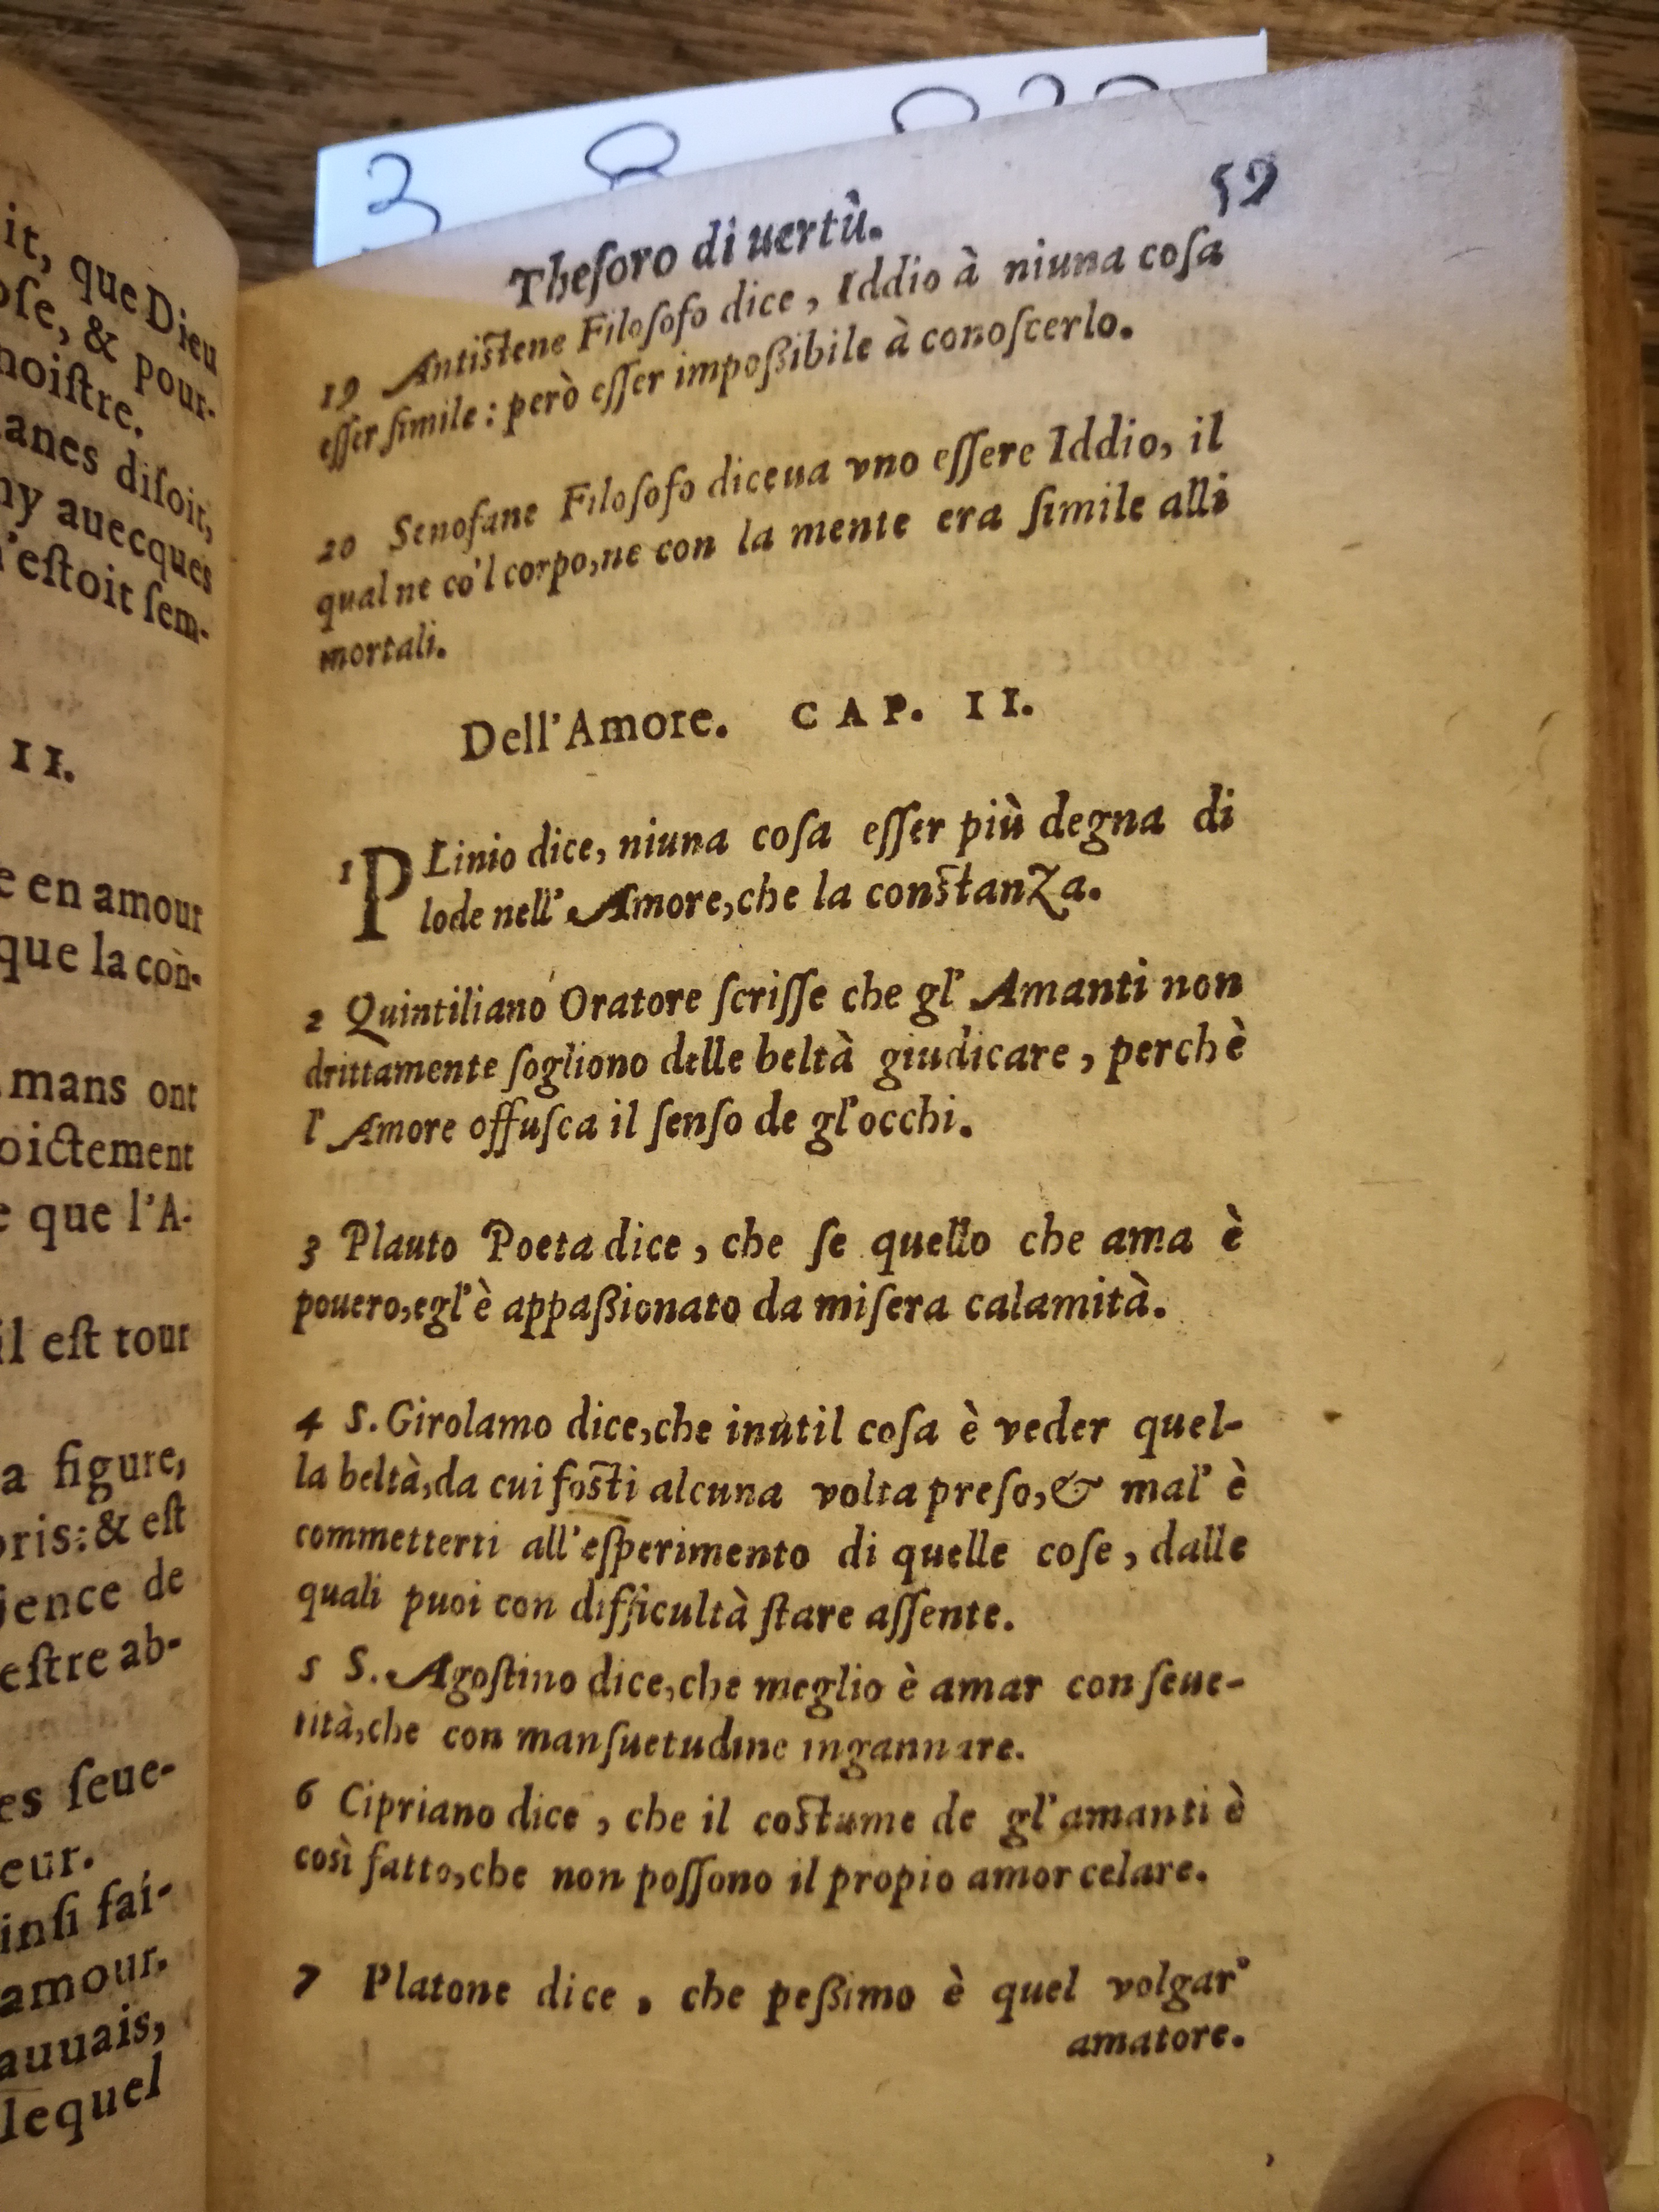 it, que Dieu
oſe, & pour-
noiſtre.
anes diſoit,
ny auecques
n'eſtoit ſem-
II.
e en amour
que la con-
mans ont
oictement
e que l'A-
il eſt tout
a figure,
oris: & eſt
ience de
eſtre ab-
es ſeue-
eur.
inſi fai-
amour.
auuais,
lequel
59
Theſoro di uertù.
19 Antiſtene Filoſofo dice, Iddio à niuna coſa
eſſer ſimile: però eſſer impoßibile à conoſcerlo.
20 Senofane Filoſofo diceua vno eſſere Iddio, il
qual ne co'l corpo, ne con la mente era ſimile alli
mortali.
Dell'Amore. CAP. II.
1 PLinio dice, niuna coſa eſſer più degna di
lode nell' Amore, che la conſtanza.
2 Quintiliano Oratore ſcriſſe che gl' Amanti non
drittamente ſogliono delle beltà giudicare, perchè
l' Amore offuſca il ſenſo de gl'occhi.
3 Plauto Poeta dice, che ſe quello che ama è
pouero, egl'è appaßionato da miſera calamità.
4 S. Girolamo dice, che inutil coſa è veder quel-
la beltà, da cui foſti alcuna volta preſo, & mal' è
commetterti all'eſperimento di quelle coſe, dalle
quali puoi con difficultà ſtare aſſente.
5 S. Agoſtino dice, che meglio è amar con ſeue-
rità, che con manſuetudine ingannare.
6 Cipriano dice, che il coſtume de gl'amanti è
così fatto, che non poſſono il propio amor celare.
7 Platone dice, che peßimo è quel volgar'
amatore.